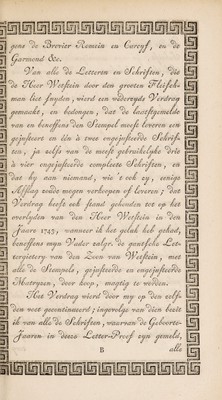 gens de Brevier Romein en Corcyf, en de
Garmond &c.
Van alle de Letteren en Schriften, die
de Heer Wetstein door den grooten Fleisch-
man liet snyden, wierd een wideruyds Verdrag
gemaakt, en bedongen, dat de laatstgemelde
van en beneffens den Stempel moest leveren een
gejusteert en één à twee ongejusteerde Schrif-
ten, ja zelfs van de meest gebruikelyke drie
à vier ongejusteerde compleete Schriften, en
dat hy aan niemand, wie 't ook zy, eenige
Afslag zoude mogen verkoopen of leveren; dat
Verdrag heeft ook stand gehouden tot op het
overlyden van den Heer Wetstein in den
Jaare 1743, wanneer ik het geluk heb gehad,
beneffens myn Vader zalgr. de gantsche Let-
tergietery van den Zoon van Wetstein, met
alle de Stempels, gejusteerde en ongejusteerde
Matryzen, door koop, magtig te worden.
Het Verdrag wierd door my op den zelf-
den voet gecontinueerd; ingevolge van dien bezit
ik van alle de Schriften, waarvan de Geboorte-
Jaaren in deeze Letter-Proef zyn gemeld,
B
alle